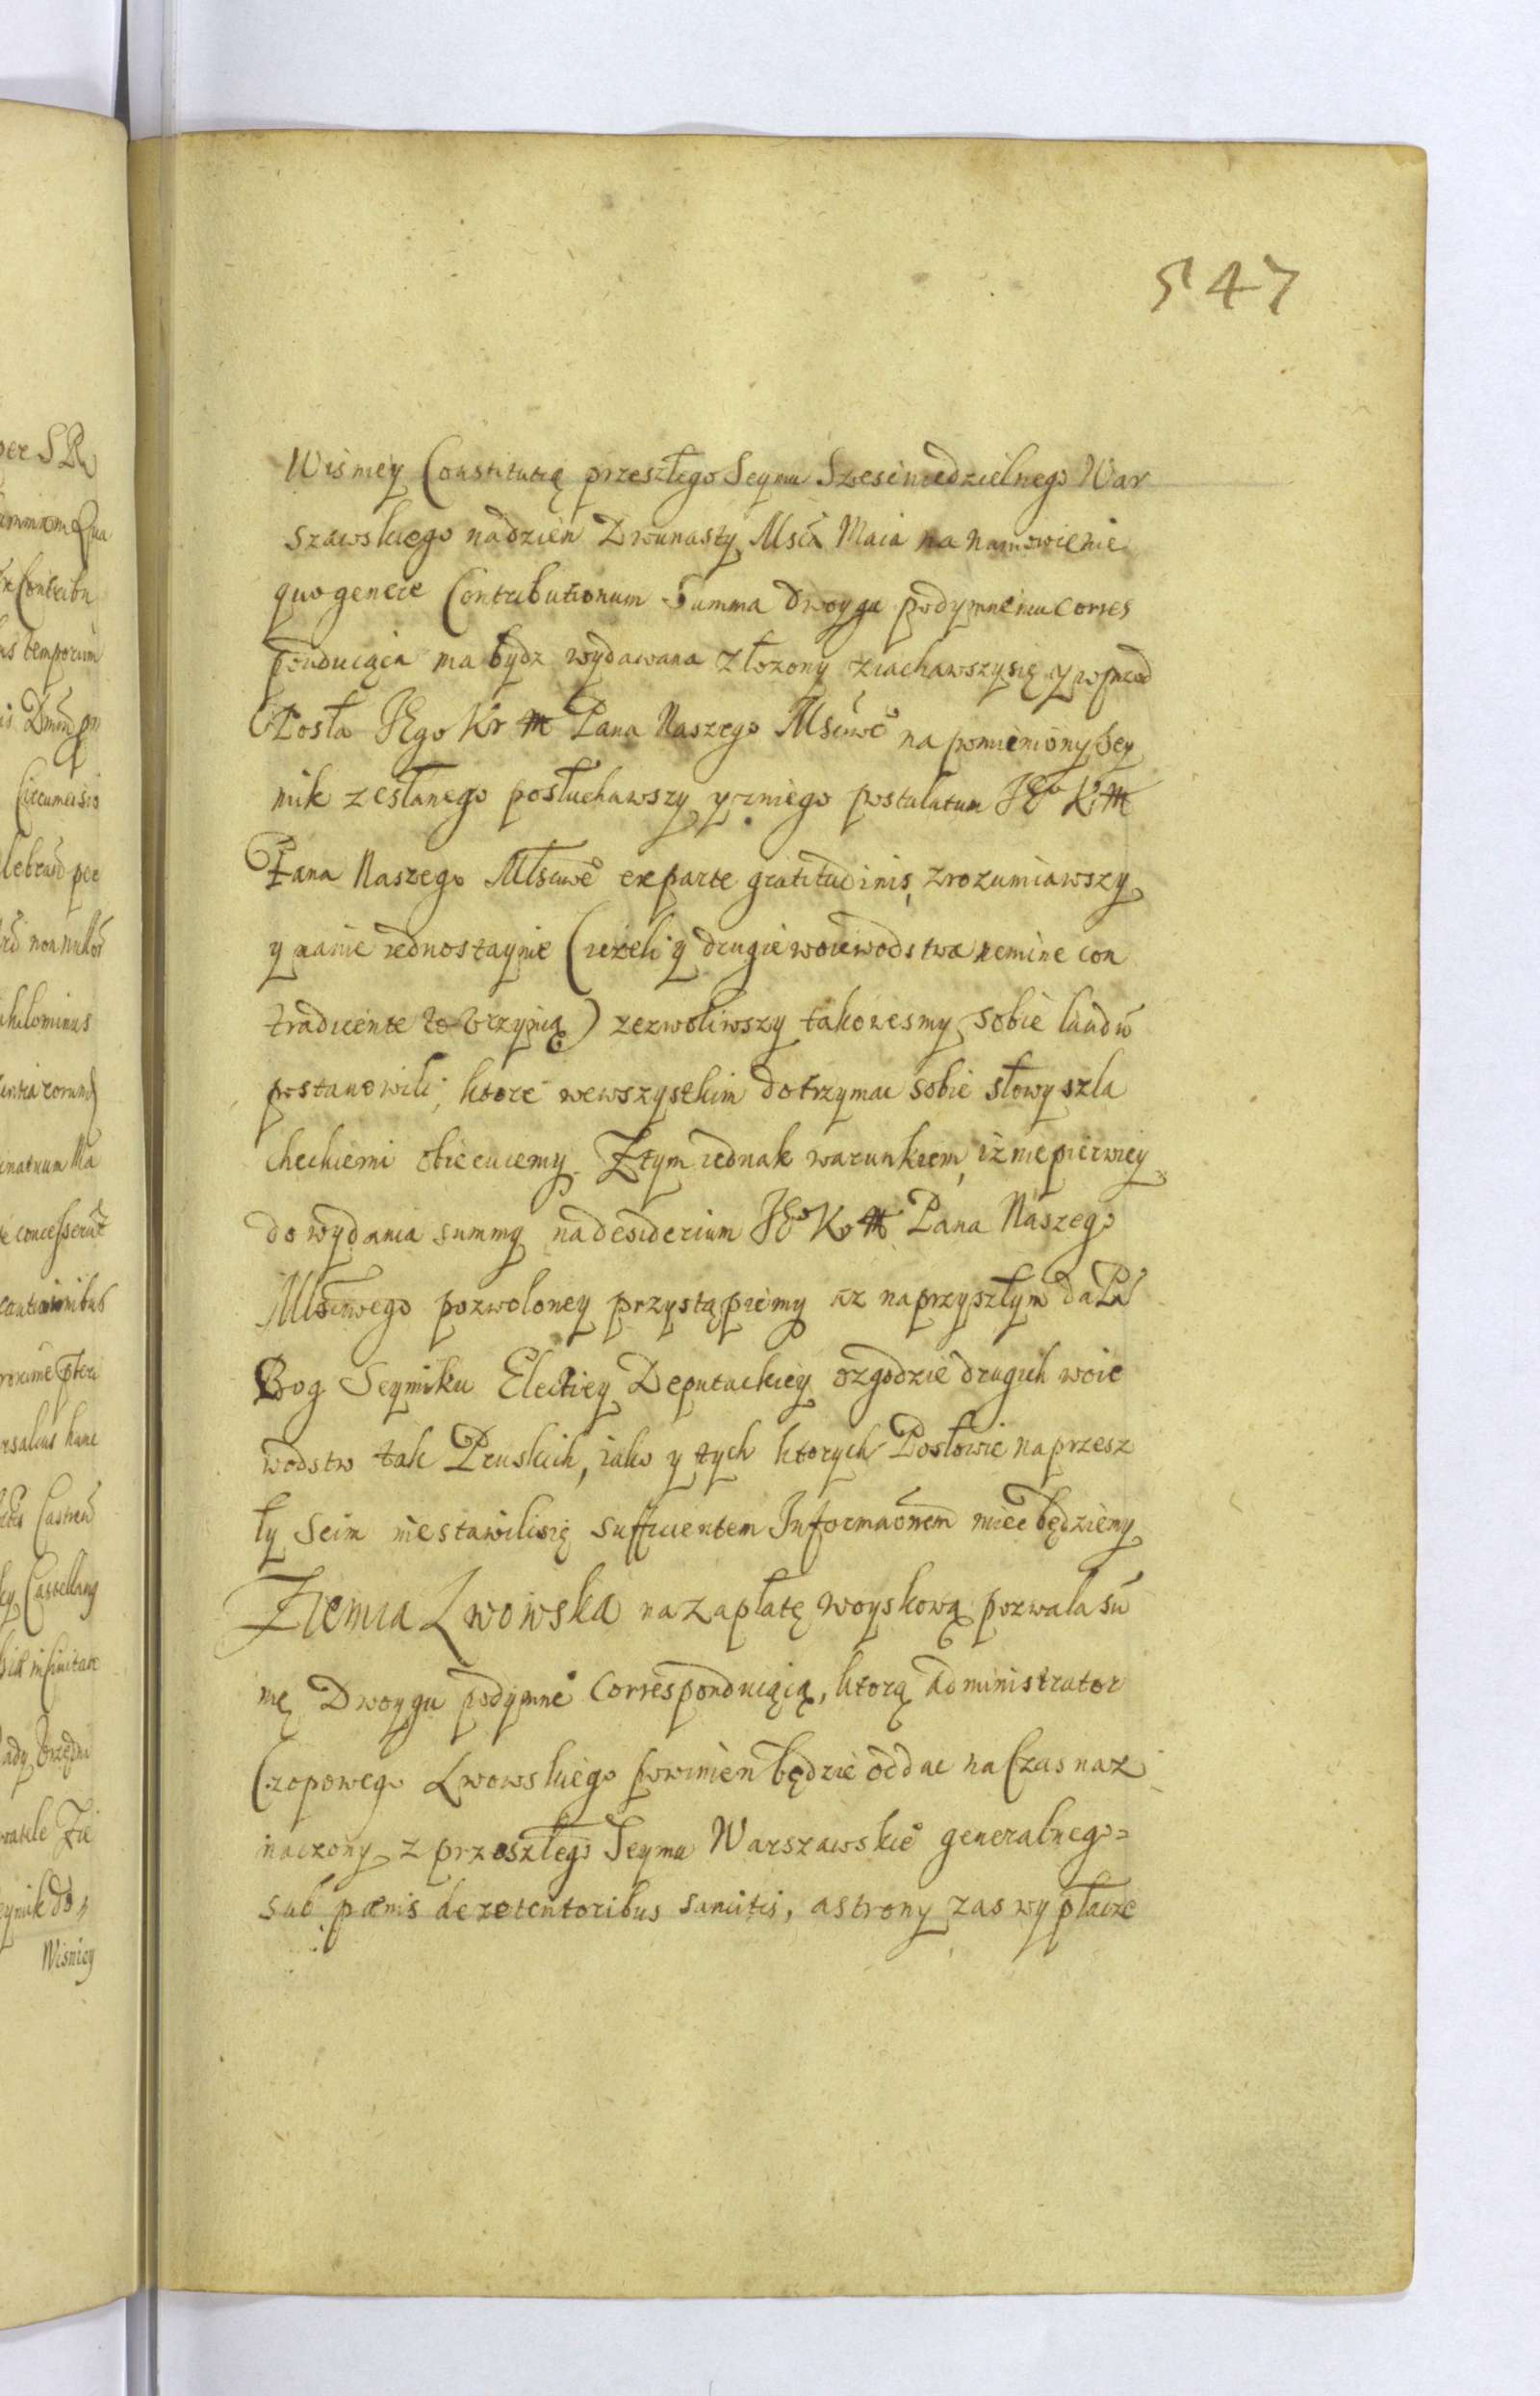 547
Wiśniey Constitutią przeszłego Seymu Szesciniedzielnego War
szawskiego nadzień Dwunasty Msca Maia na namowienie
quo genere Contributionum Summa dwoygu podymnemu corres
ponduiąca ma bydz wydawana złozony ziachawszysię y wprzod
Posła JEgo Kr M Pana Naszego Msciwe° na pomieniony Sey
mik zesłanego posłuchawszy y zniego postulatum JE° K M
Pana Naszego Młsciwe° ex parte gratitudinis, zrozumiawszy
y nanie iednostaynie (ieżeli y drugie woiewodstwa nemine con
tradicente to vczynią) zezwoliwszy takowesmy sobie laudū
postanowili, ktore wewszystkim dotrzymac sobie słowy szla
checkiemi obiecuiemy. Ztym iednak warunkiem, iż niepierwiey
do wydania summy na desiderium JE° K M Pana Naszego
Młsciwego pozwoloney przystąpiemy az naprzyszłym da Pā
Bog Seymiku Electiey Deputackiey ozgodzie drugich woie
wodstw tak Pruskich, iako y tych ktorych Posłowie naprzesz
ły Seim niestawilisię sufficientem Informaōnem miec będziemy
Ziemia Lwowska na zapłatę woyskową pozwala sū
mę Dwoygu podymne° correspondniącą, ktorą Administrator
Czopowego Lwowskiego powinien będzie oddac na Czas naz
naczony z przeszłego Seymu Warszawskie° generalnego=
sub pœnis de retentoribus sancitis, a strony zas wypłacze
per S R
Contribu
temporum
Circumcisio
lebrand per
non nullos
philominus
concesserūt
cautionibus
hanc
Castren
Castellany
Zie
eymik do
Wisniey